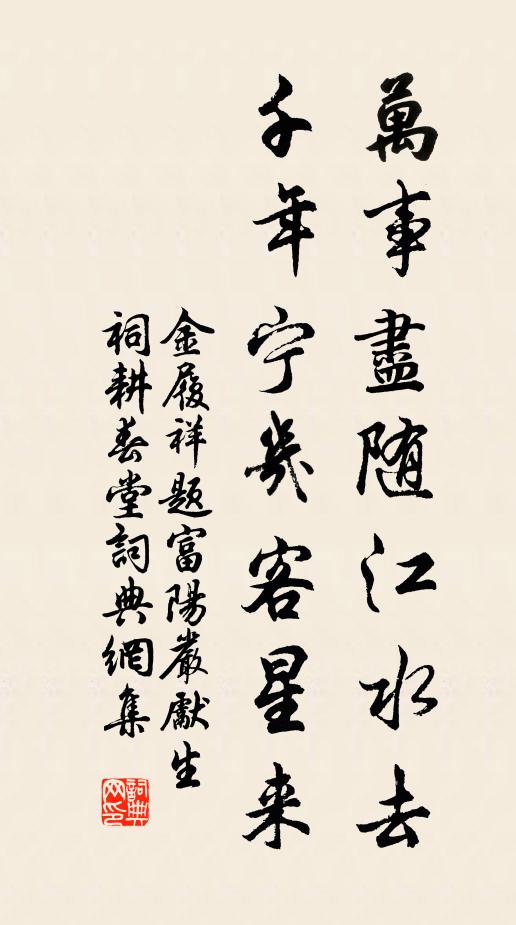 萬事盡随江水去
千年宁幾客星来
金履祥題富陽嚴獻生
祠耕春堂詞典網集
詞典网印